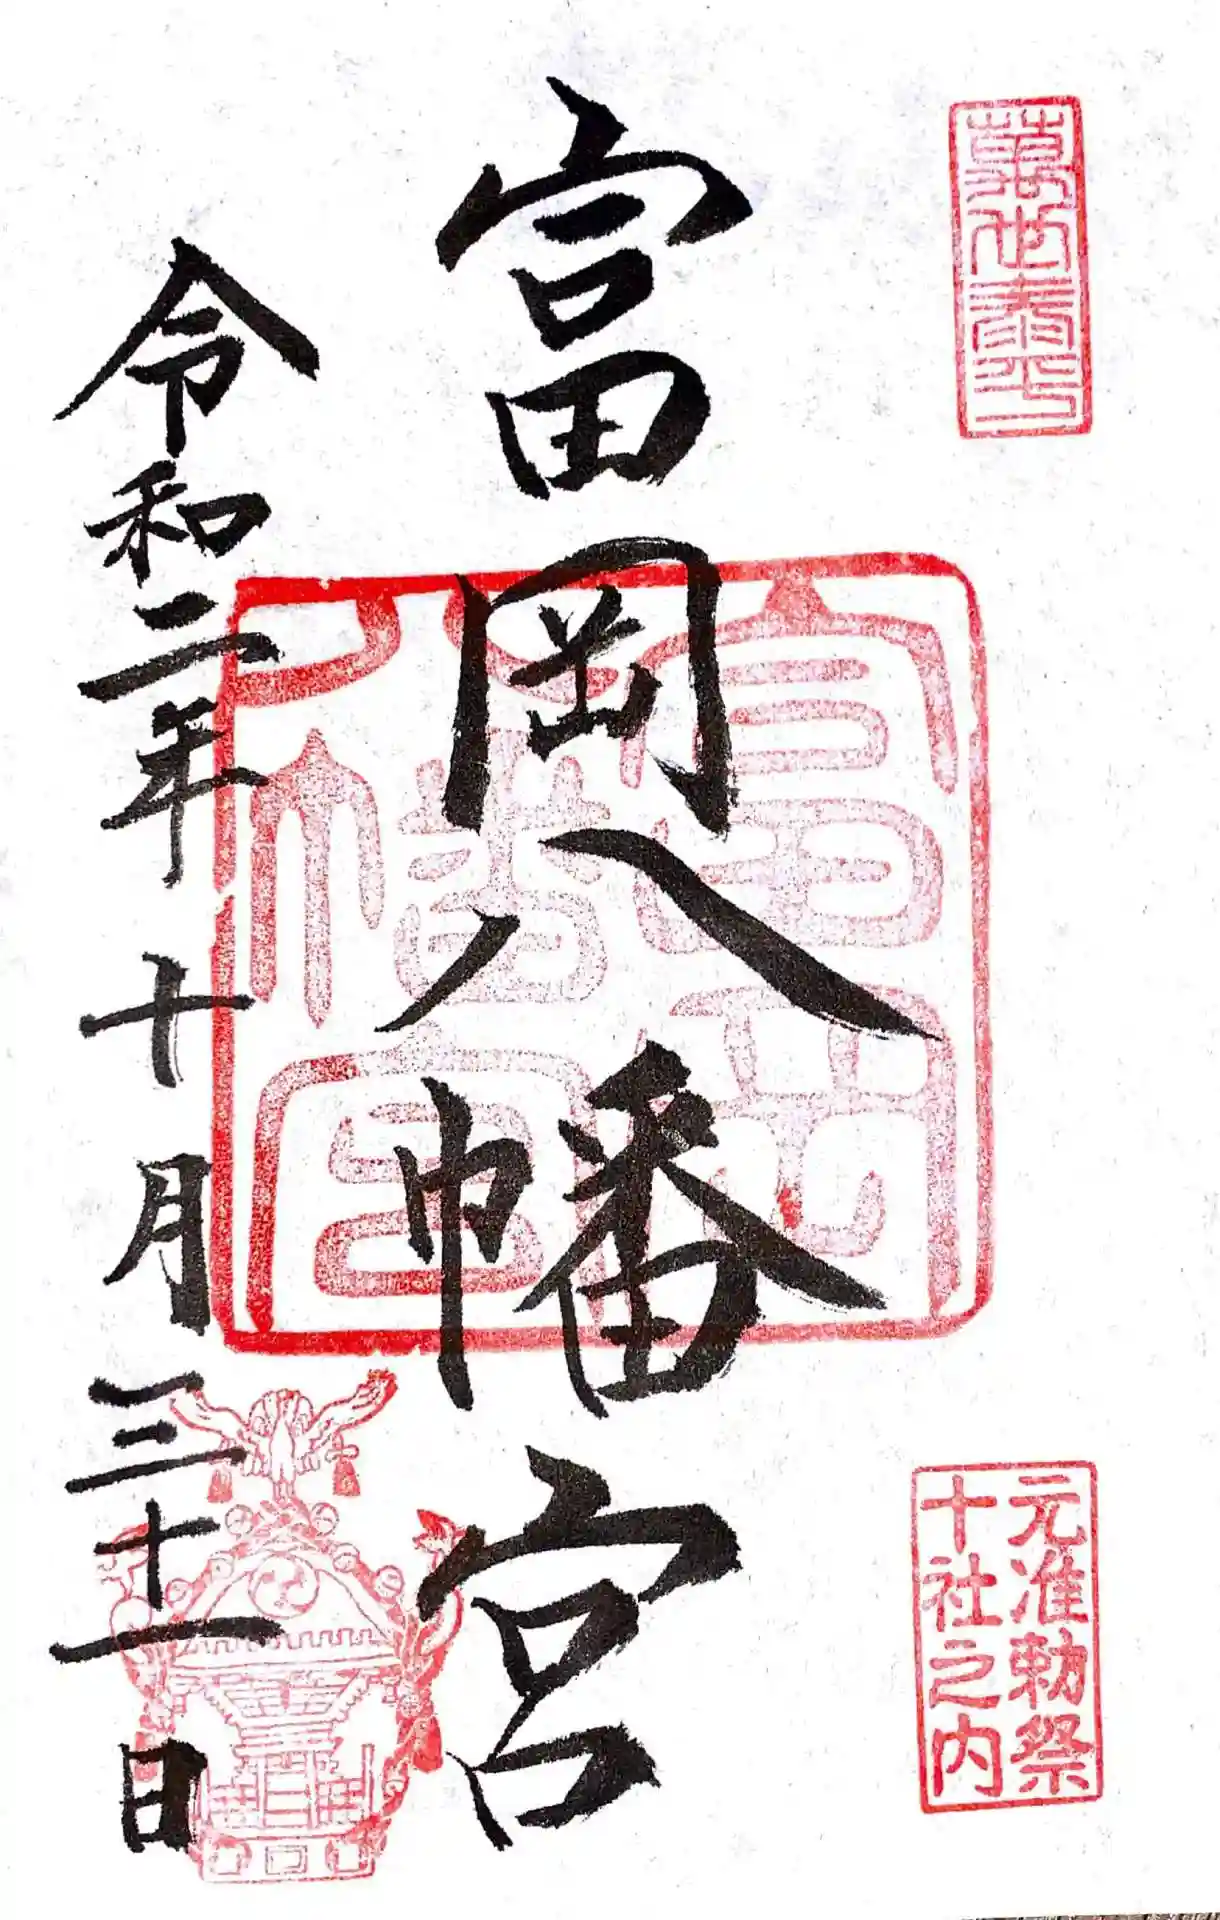 萬世泰平
元准勅祭
十社之内
富岡八幡宮
富岡
八幡宮
令和二年十月三十一日